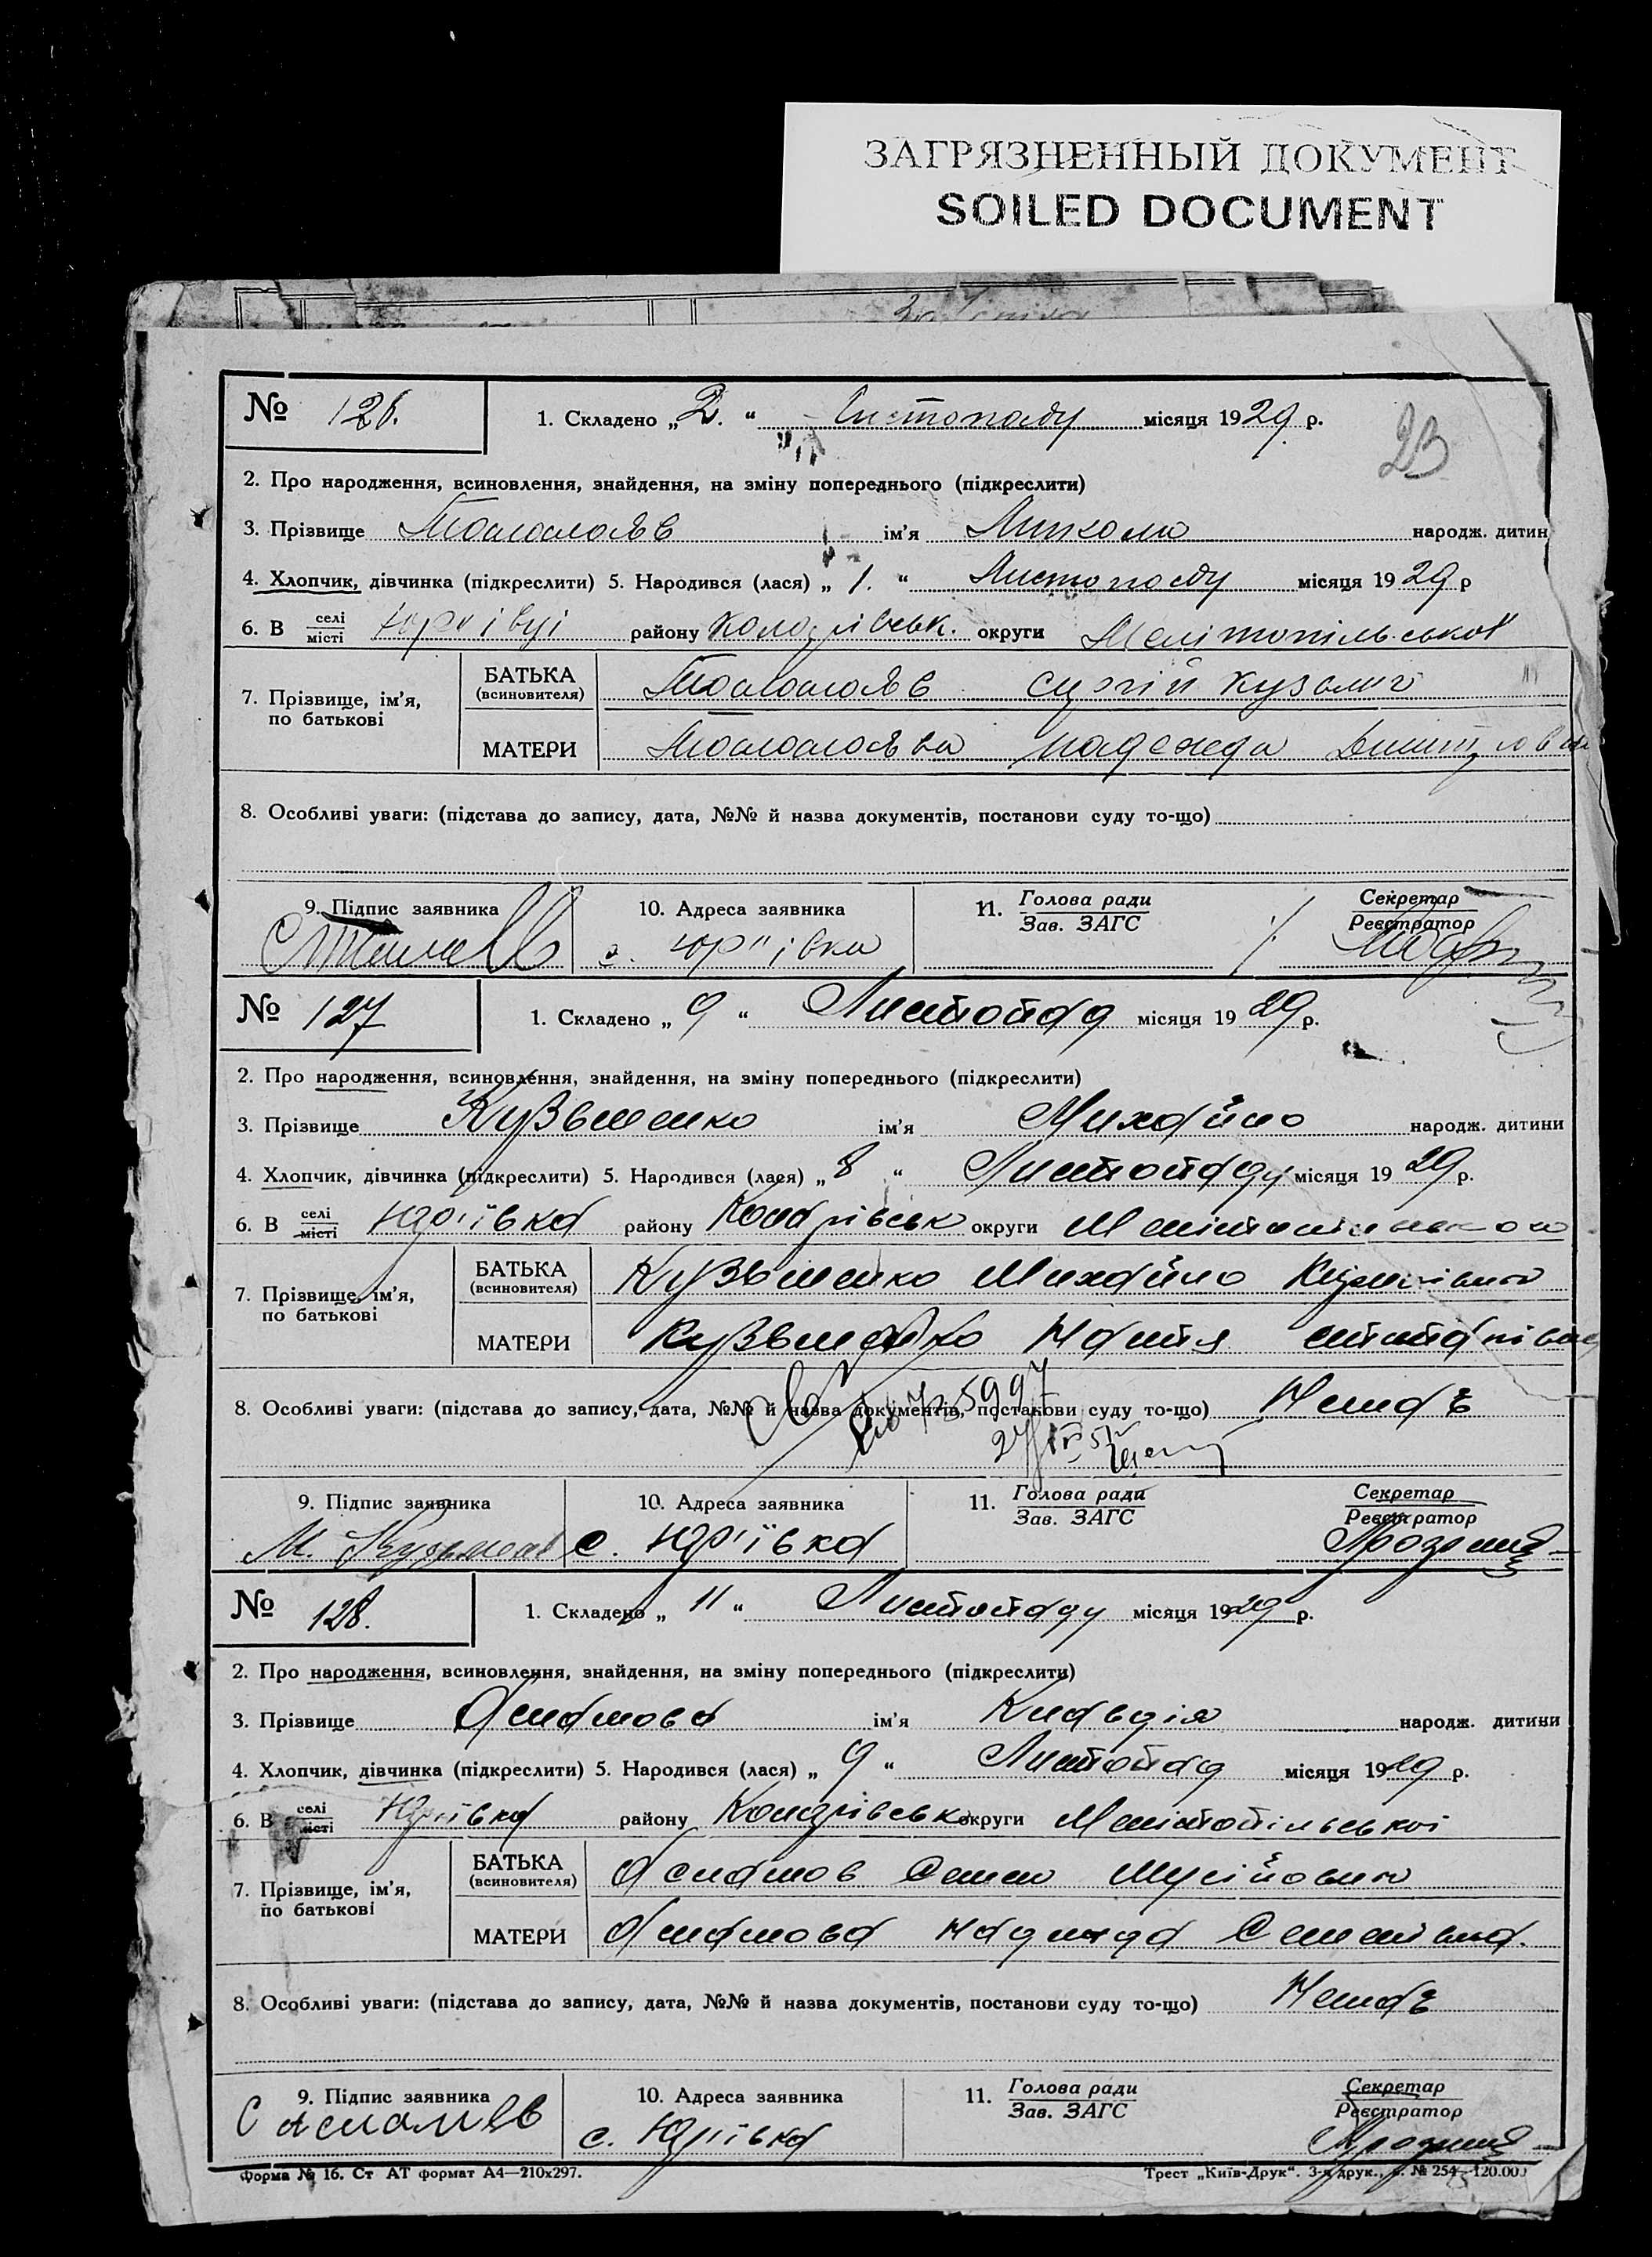 ЗАГРЯЗНЕННЫЙ ДОКУМЕНТ
SOILED DOCUMENT
23
№ 126. 1. Складено „2.“ Листопаду місяця 1929 р.
2. Про народження, всиновлення, знайдення, на зміну попереднього (підкреслити)
3. Прізвище ім'я Микола народж. дитин
4. Хлопчик, дівчинка (підкреслити) 5. Народився (лася) „1.“ Листопаду місяця 1929 р
6. В селі місті Юр'івці району округи Мелітопільської
7. Прізвище, ім'я, по батькові
БАТЬКА (всиновителя) Сергій Кузьмич
МАТЕРИ Надежда
8. Особливі уваги: (підстава до запису, дата, №№ й назва документів, постанови суду то-що)
9. Підпис заявника 10. Адреса заявника 11. Голова ради Зав. ЗАГС Секретар Реєстратор
с. Юр"івка
№ 127 1. Складено „9“ Листопад місяця 1929 р.
2. Про народження, всиновлення, знайдення, на зміну попереднього (підкреслити)
3. Прізвище Кузьменко ім'я Михайло народж. дитини
4. Хлопчик, дівчинка (підкреслити) 5. Народився (лася) „8“ Листопаду місяця 1929 р.
6. В селі місті Юр'ївка району округи
7. Прізвище, ім'я, по батькові
БАТЬКА (всиновителя) Кузьменко Михайло
МАТЕРИ Кузьменко
8. Особливі уваги: (підстава до запису, дата, №№ й назва документів, постанови суду то-що) Немає
9. Підпис заявника 10. Адреса заявника 11. Голова ради Зав. ЗАГС Секретар Реєстратор
М. Кузьменко с. Юр'ївка
№ 128. 1. Складено „11“ Листопаду місяця 1929 р.
2. Про народження, всиновлення, знайдення, на зміну попереднього (підкреслити)
3. Прізвище Асламова ім'я Клавдія народж. дитини
4. Хлопчик, дівчинка (підкреслити) 5. Народився (лася) „9“ Листопад місяця 1929 р.
6. В селі місті Юр'ївка району округи Мелітопільської
7. Прізвище, ім'я, по батькові
БАТЬКА (всиновителя) Асламов Семен
МАТЕРИ Асламова Надежда Семенівна.
8. Особливі уваги: (підстава до запису, дата, №№ й назва документів, постанови суду то-що) Немає
9. Підпис заявника 10. Адреса заявника 11. Голова ради Зав. ЗАГС Секретар Реєстратор
с. Юр'ївка
Форма № 16. Ст АТ формат А4—210х297. Трест „Київ-Друк“. 3-я друк., з. № 254—120.000